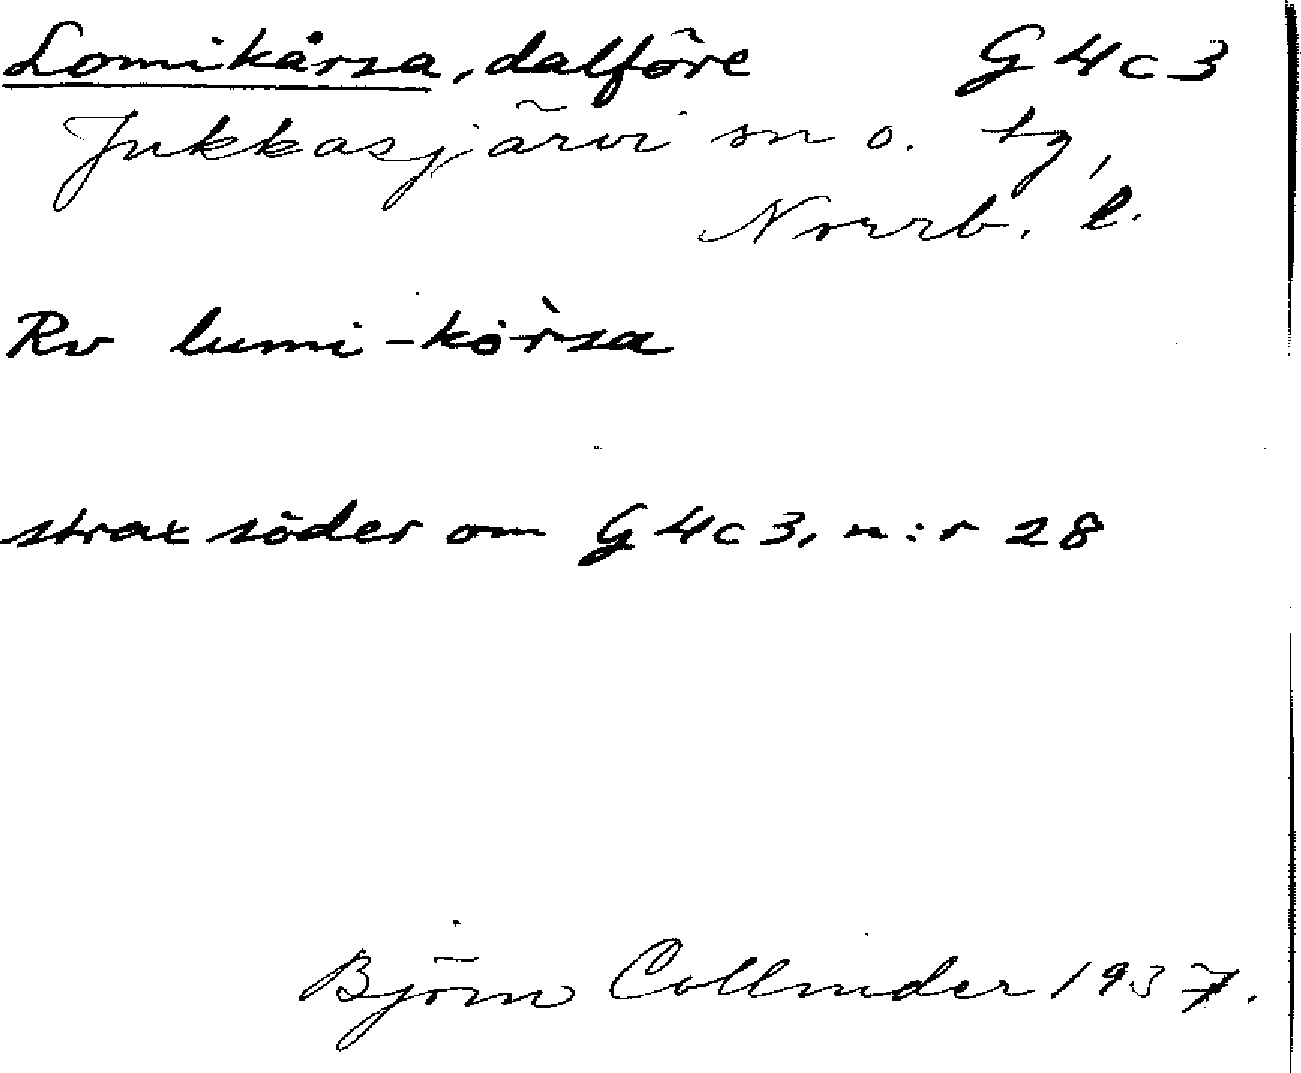 Lomikårsa, dalföre G4c3
Jukkasjärvi sn o. tg,
Norrb. l.
Rv lumi-kȯ̀rsa
strax söder om G4c3, n:r 28
Björn Collinder 1937.